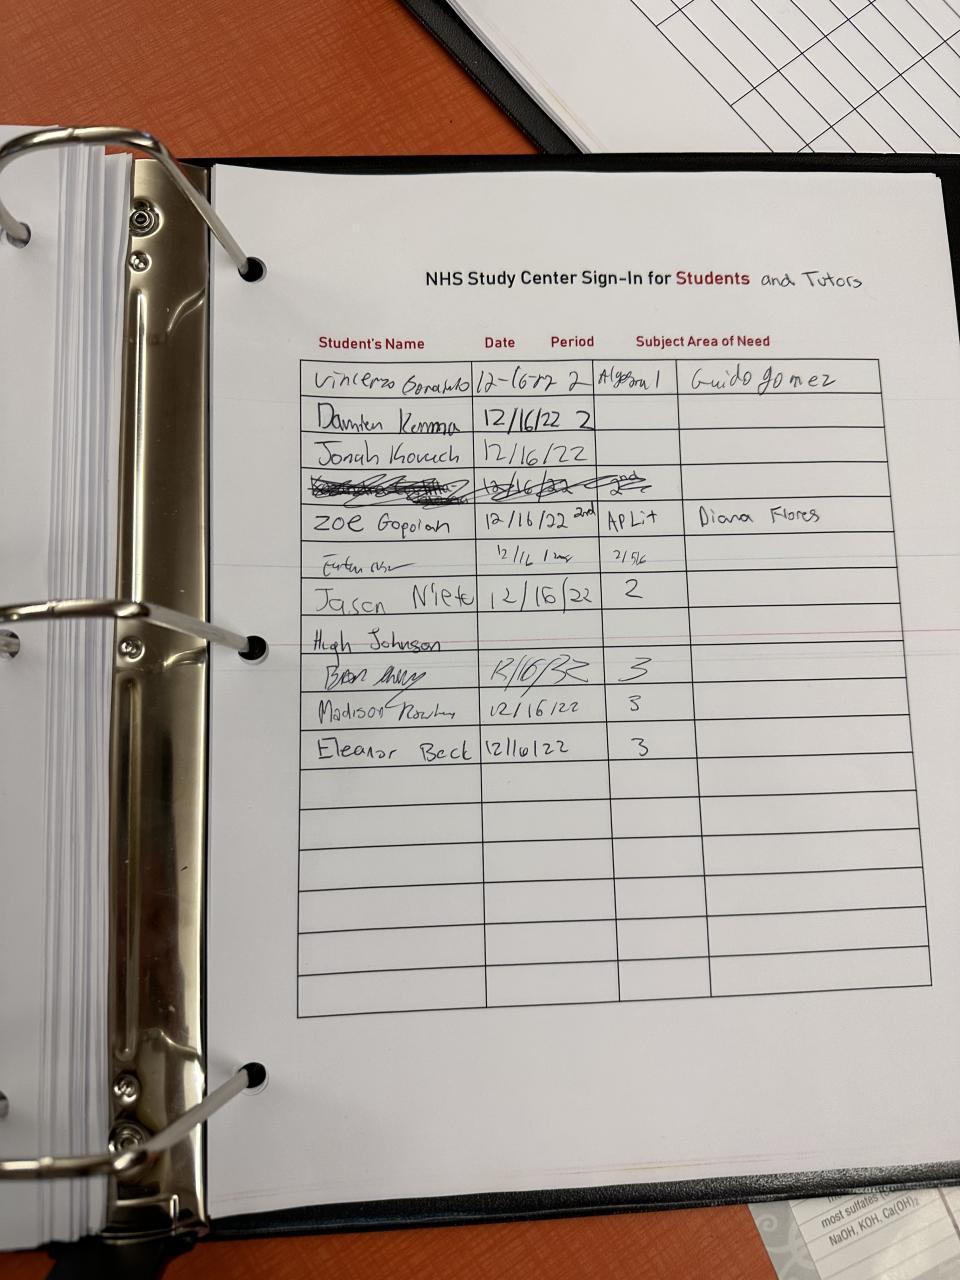 NHS Study Center Sign-In for Students and Tutors
Student's Name Date Period Subject Area of Need
Vincenzo 12-16-22 2 Algebra 1 Guido gomez
Damien Kemma 12/16/22 2
Jonah Kovach 12/16/22
12/16/22 2nd
Zoe Gopoian 12/16/22 2nd AP Lit Diana Flores
12/16
Jason Nieto 12/16/22 2
Hugh Johnson
12/16/22 3
Madison 12/16/22 3
Eleanor Beck 12/16/22 3
most sulfates
NaOH, KOH, Ca(OH)₂